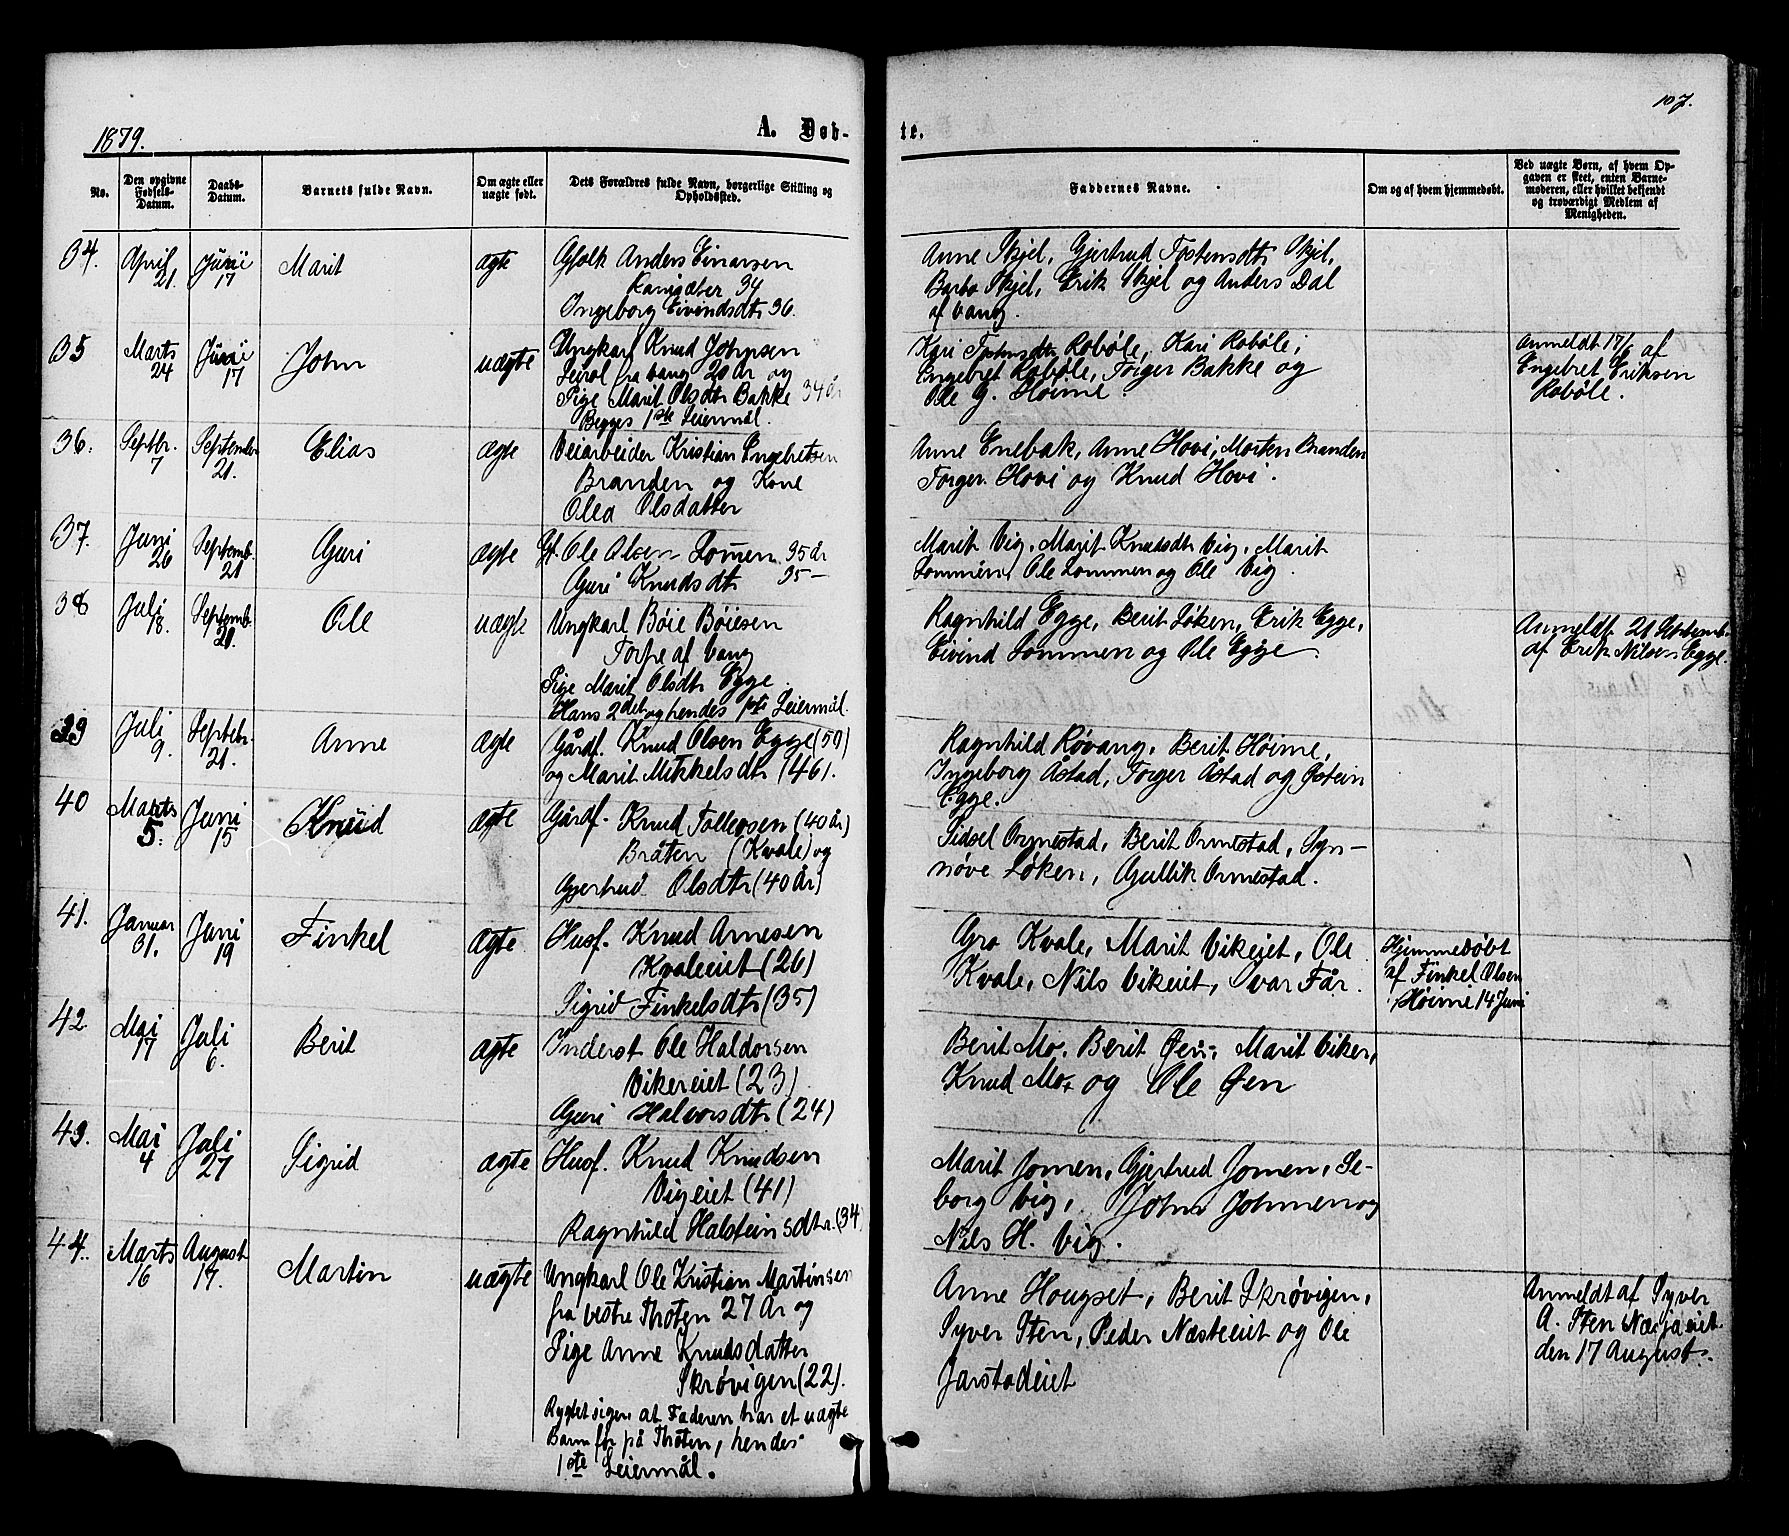 107.
1879.
A. Døb-
te.
No.
Den opgivne Fødsels-Datum.
Daabs-Datum.
Barnets fulde Navn.
Om ægte eller uægte født.
Dets Forældres fulde Navn, borgerlige Stilling og Opholdssted.
Faddernes Navne.
Om og af hvem hjemmedøbt.
Ved uægte Børn, af hvem Opgaven er skeet, enten Barnemoderen, eller hvilket bekjendt og troværdigt Medlem af Menigheden.
34. April 21. Junii 17 Marit ægte
Gfolk Anders Einarsen
34
Ingeborg Eivindsdtr 36.
Anne Skjel, Gjertrud Tostensdtr Skjel,
Barbo Skjel, Erik Skjel og Anders Dal
af Vang.
35 Marts 24 Junii 17 John uægte
Ungkarl Knud Johnsen
Leirol fra Vang 20 år og
Pige Marit Olsdtr Bakke 34 år
Begges 1ste Leiermål.
Kari Tostensdtr Robøle, Kari Robøle,
Engebret Robøle, Torger Bakke og
Ole G. Høime.
Anmeldt 17/ af
Engebret Eriksen
Robøle.
36. Septbr. 7 September 21. Elias ægte
Veiarbeider Kristian Engebretsen
Branden og Kone
Olea Olsdatter
Anne Enebak, Anne Hovi, Morten Branden
Torger Hovi og Knud Hovi.
37. Juni 26 Septemb. 21 Guri ægte
Gf. Ole Olsen Lomen 35 år
Guri Knudsdtr 35 —
Marit Vig, Marit Knudsdtr Vig, Marit
Lommen, Ole Lommen og Ole Vig.
38 Juli 18. Septemb. 21. Ole uægte
Ungkarl Bøie Bøiesen
Torpe af Vang
Pige Marit Olsdtr Egge.
Hans 2det og hendes 1ste Leiermål.
Ragnhild Egge, Berit Løken, Erik Egge,
Eivind Lommen og Ole Egge.
Anmeldt 21 Septemb.
af Erik Nilsen Egge.
39 Juli 9. Septebr. 21. Anne ægte
Gårdf. Knud Olsen Egge (50)
og Marit Mikkelsdtr (46).
Ragnhild Røvang, Berit Høime,
Ingeborg Åstad, Torger Åstad og Østein
Egge.
40 Marts 5. Juni 15 Knud ægte
Gårdf. Knud Tollevsen (40 år)
Bråten (Kvale) og
Gjertrud Olsdtr (40 år)
Sidsel Ormestad, Berit Ormestad, Syn-
nøve Løken, Gullik Ormestad.
41. Januar 31. Juni 19 Finkel ægte
Husf. Knud Arnesen
Kvaleeiet (26)
Sigrid Finkelsdtr (35)
Gro Kvale, Marit Vikeiet, Ole
Kvale, Nils Vikeiet, Ivar Får.
Hjemmedøbt
af Finkel Olsen
Høime 14 Juni
42 Mai 17 Juli 6. Berit ægte
Inderst Ole Haldorsen
Vikereiet (23)
Guri Halvorsdtr (24)
Berit Mo, Berit Øen, Marit Viker,
Knud Mo og Ole Øen
43. Mai 4 Juli 27 Sigrid ægte
Husf. Knud Knudsen
Vigeiet (41)
Ragnhild Halsteinsdtr. (34
Marit Jomen, Gjertrud Jomen, Se-
borg Vig, John Johmen og
Nils H. Vig.
44. Marts 16 August 17. Martin uægte
Ungkarl Ole Kristian Martinsen
fra Vestre Thoten 27 År og
Pige Anne Knudsdatter
Skrøvigen (22).
Rygtet siger at Faderen har et uægte
Barn før på Thoten, hendes
1ste Leiermål.
Anne Hougset, Berit Skrøvigen,
Syver Sten, Peder Næsteeiet og Ole
Jarstadeiet
Anmeldt af Syver
A. Sten Næsjaeiet
den 17 August.